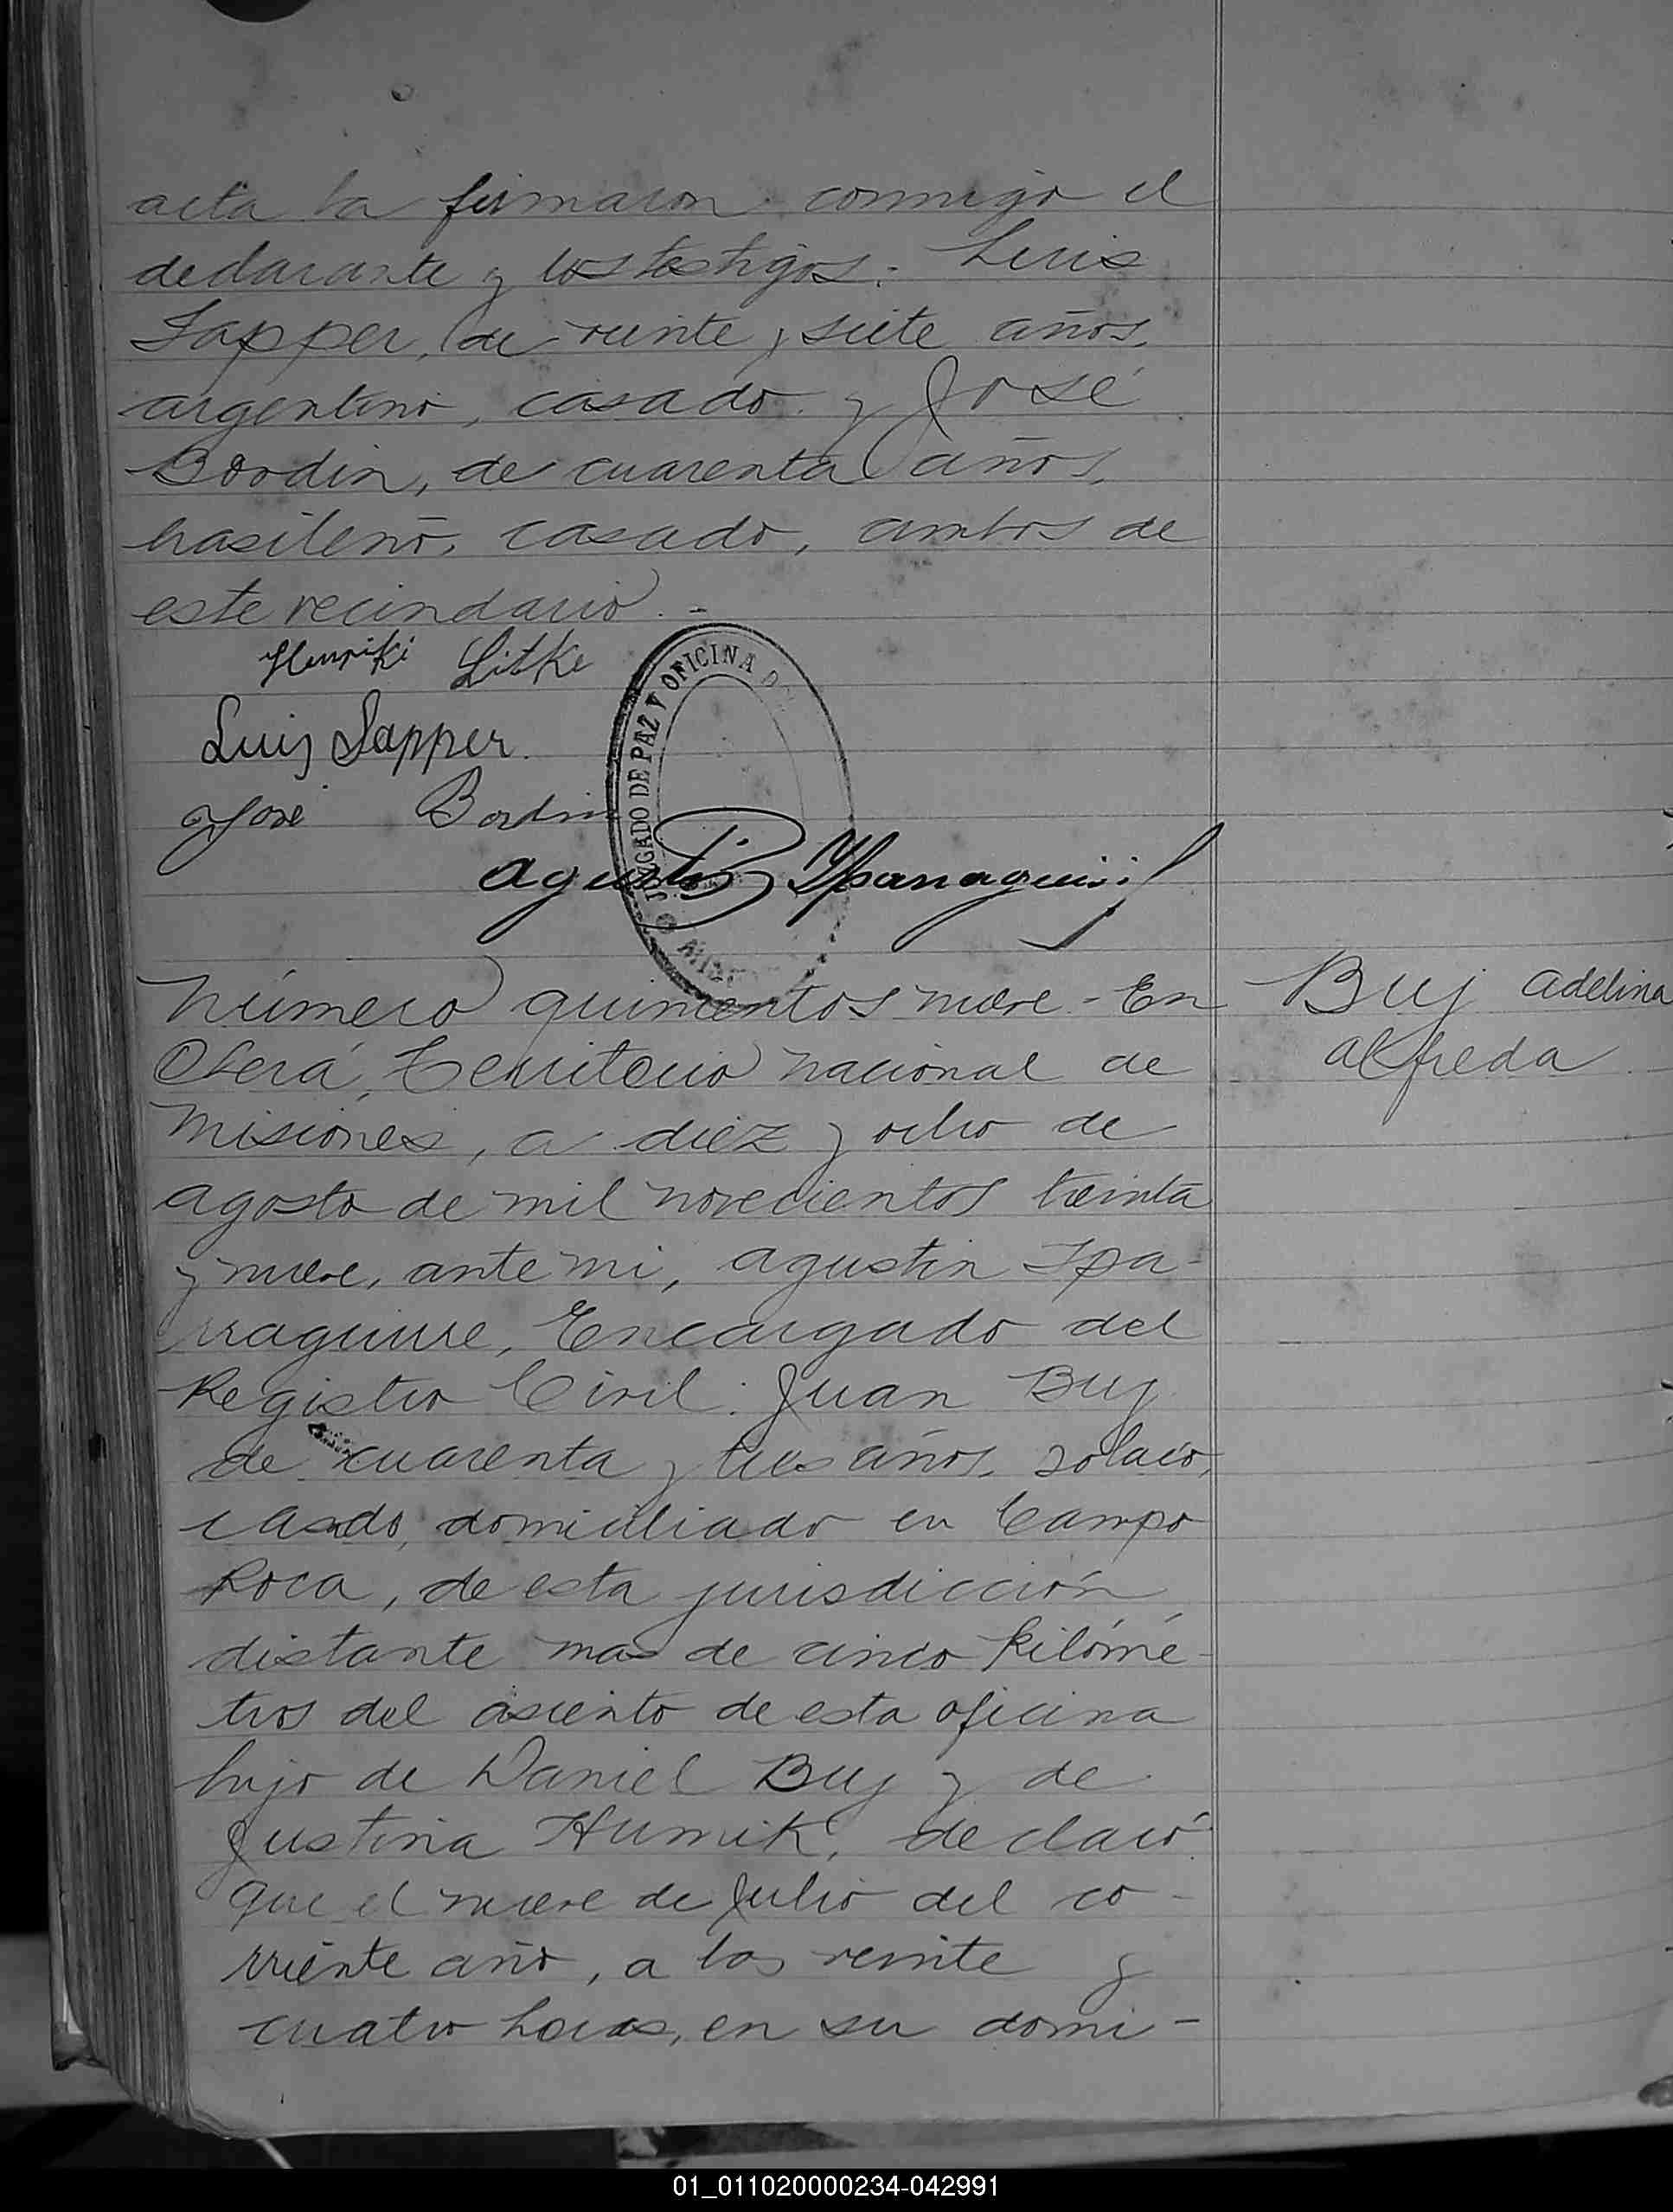 acta la firmaron conmigo el
declarante y los testigos: Luis
Sapper, de veinte y siete años,
argentino, casado y José
Bordin, de cuarenta años,
brasileño, casado, ambos de
este vecindario.-
Henriki Litke
Luis Sapper.
José Bordin
JUZGADO DE PAZ Y OFICINA D
Agustin Yparraguirre
Número quinientos nueve - En
Oberá, Territorio nacional de
Misiones, a diez y ocho de
agosto de mil novecientos treinta
y nueve, ante mi, Agustin Ipa-
rraguirre, Encargado del
Registro Civil: Juan Buj
de cuarenta y tres años, polaco,
casado, domiciliado en Campo
Roca, de esta jurisdicción,
distante mas de cinco kilóme-
tros del asiento de esta oficina
hijo de Daniel Buj y de
Justina Humik, declaró:
que el nueve de Julio del co-
rriente año, a las veinte y
cuatro horas, en su domi-
Buj Adelina
Alfreda
01_011020000234-042991